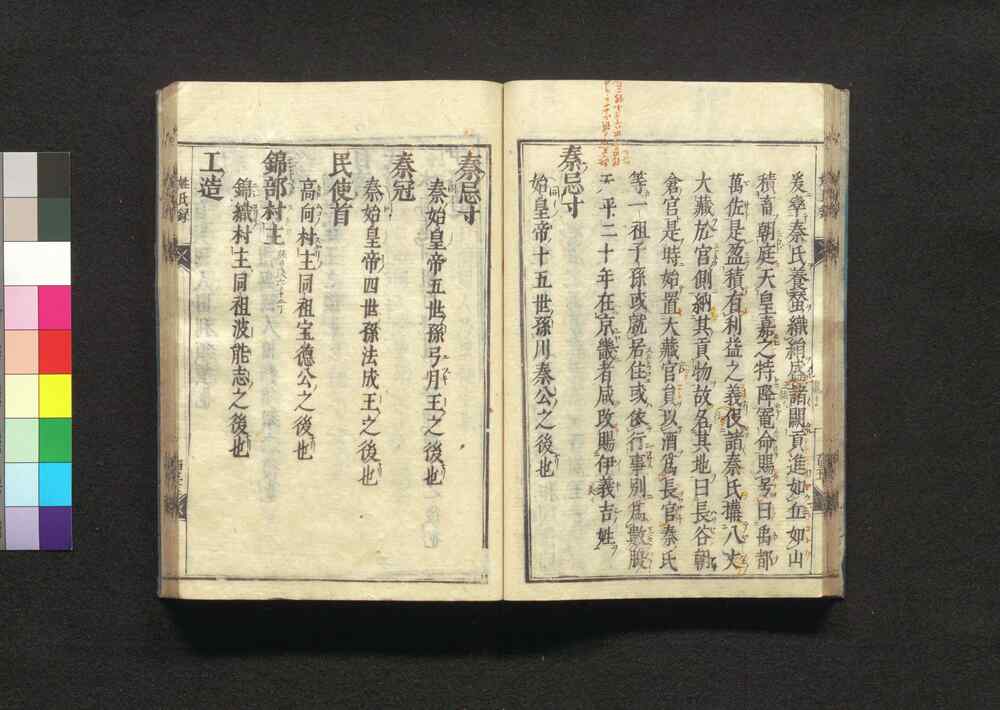 爰率秦氏養蠶織絹盛諸闕貢進如丘如山
積畜朝庭天皇嘉之特降寵命賜号曰禹都
萬佐是盈積有利益之義役諸秦氏搆八丈
大藏於宮側納其貢物故名其地曰長谷朝
倉宮是時始置大藏官員以酒為長官秦氏
等一祖子孫或就居住或依行事別為數腹
天平二十年在京畿者咸改賜伊義吉姓
秦忌寸
始皇帝十五世孫川秦公之後也
秦忌寸
秦始皇帝五世孫弓月王之後也
秦冠
秦始皇帝四世孫法成王之後也
民使首
高向村主同祖宝德公之後也
錦部村主
錦織村主同祖波能志之後也
工造
姓氏録